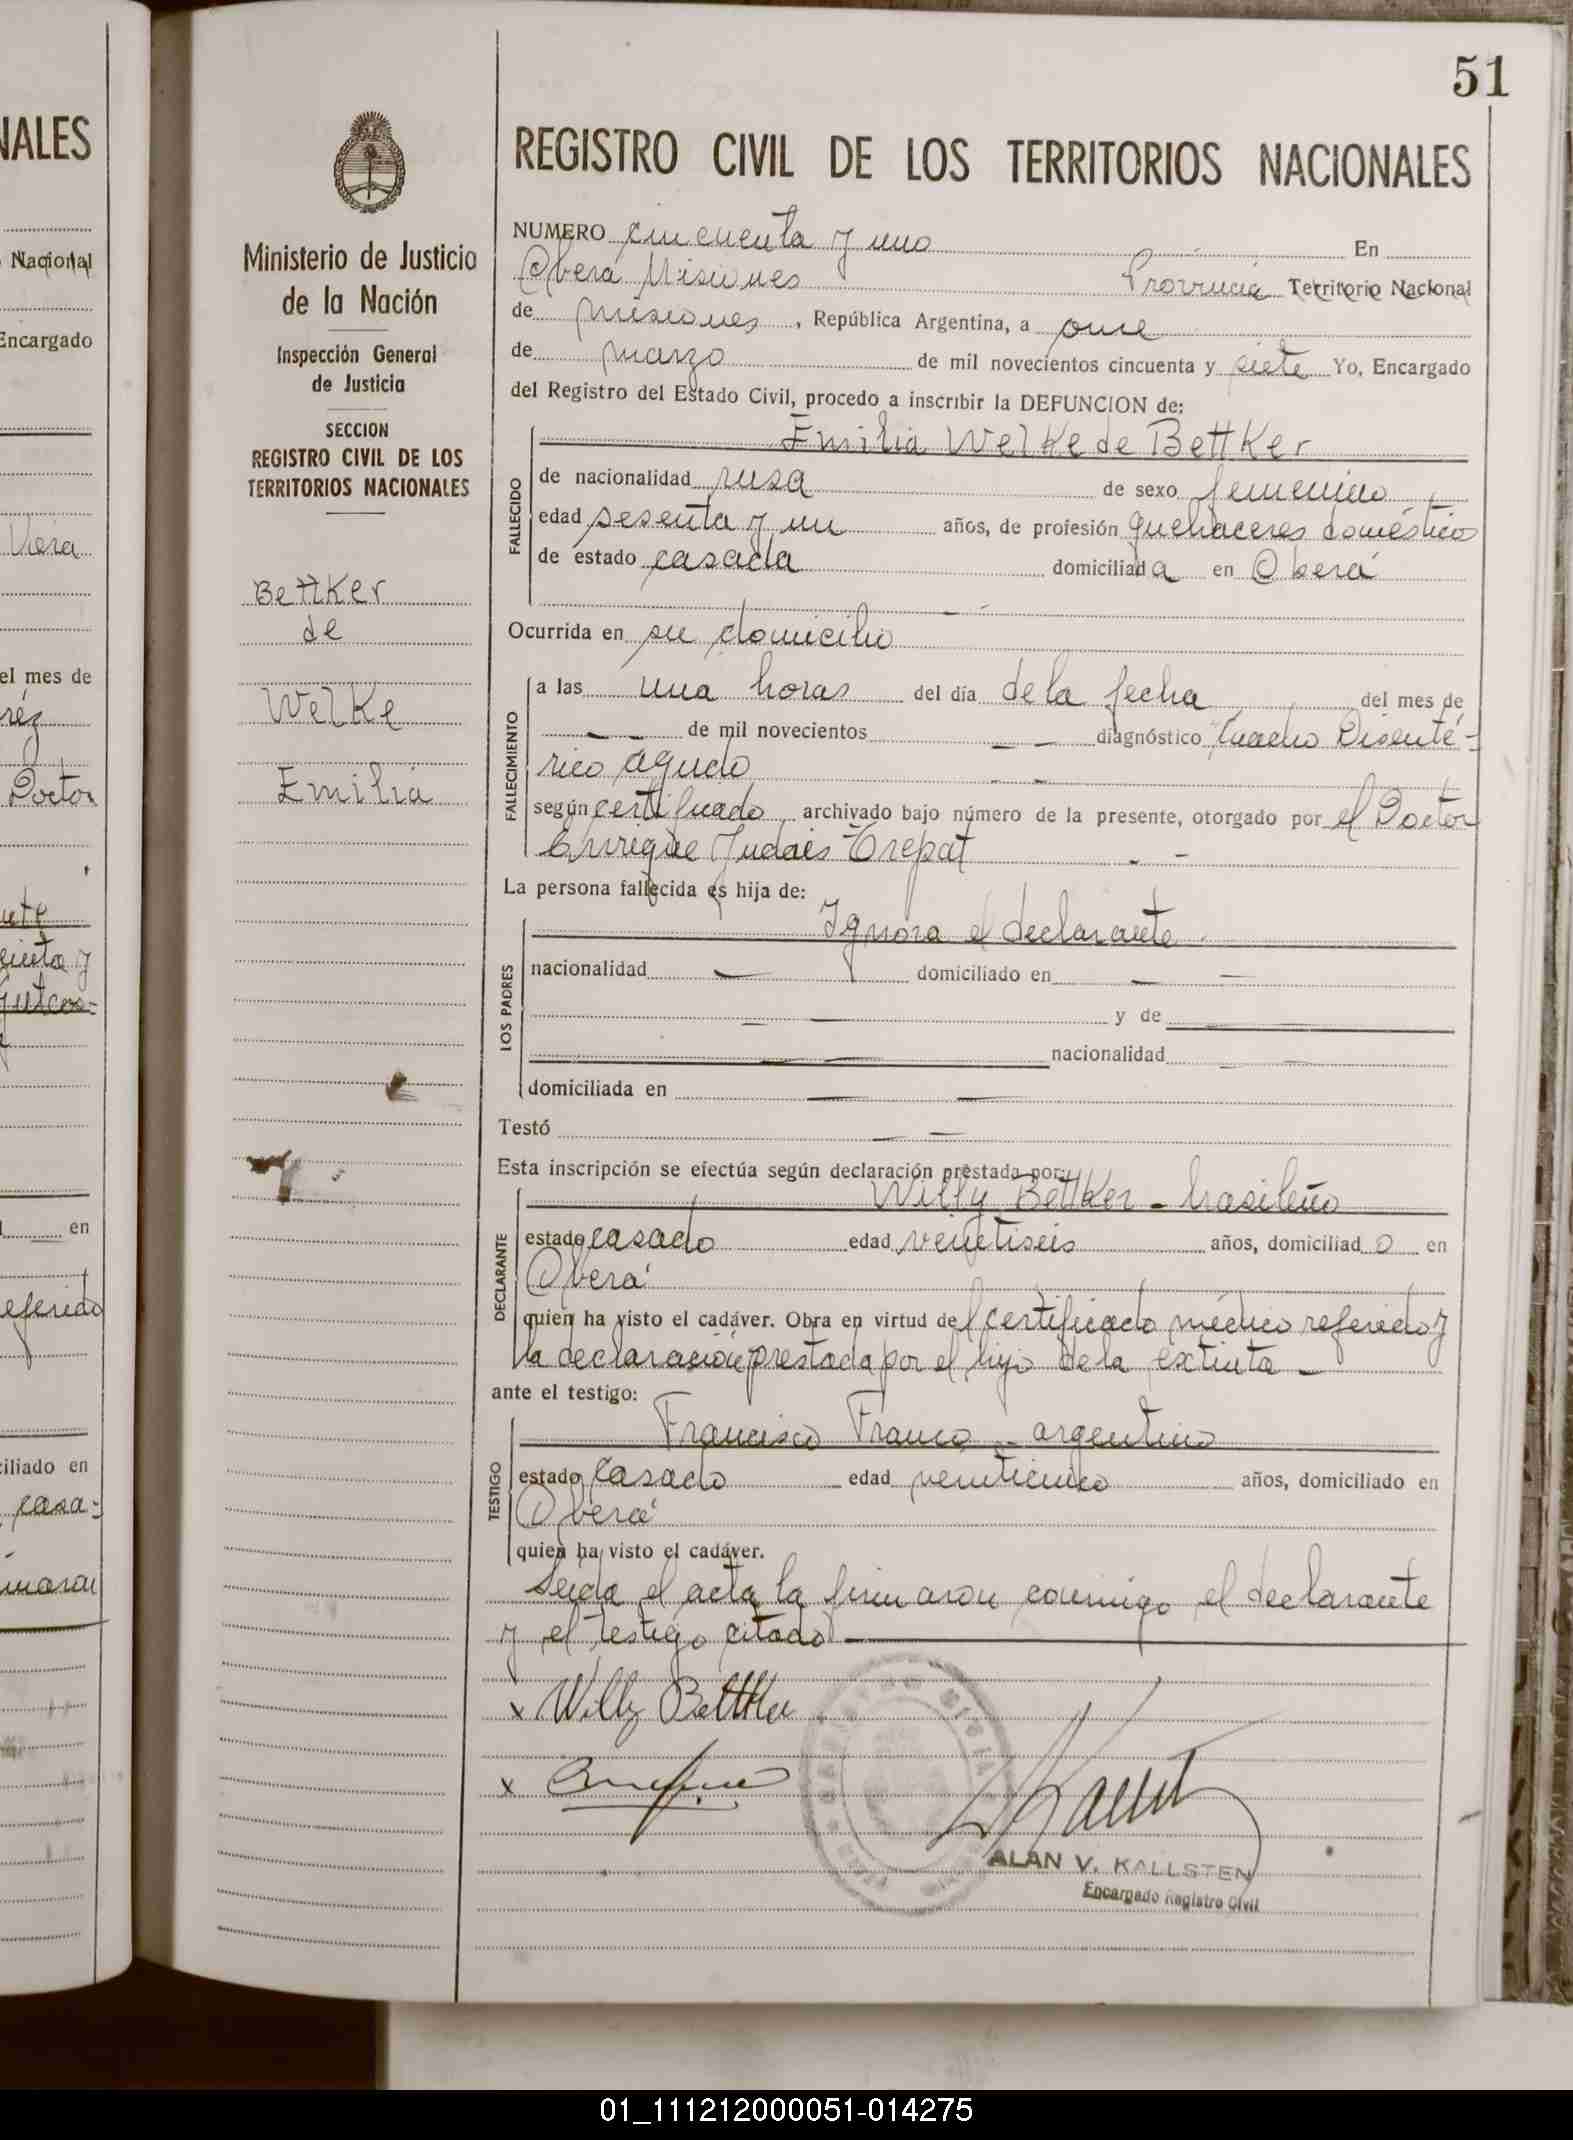 51
NALES
Nacional
Encargado
Viera
el mes de
Doctor
en
referido
ciliado en
casa-
Ministerio de Justicia
de la Nación
Inspección General
de Justicia
SECCION
REGISTRO CIVIL DE LOS
TERRITORIOS NACIONALES
Bettker
de
Welke
Emilia
REGISTRO CIVIL DE LOS TERRITORIOS NACIONALES
NUMERO cincuenta y uno En
Oberá Misiones Provincia Territorio Nacional
de misiones, República Argentina, a once
de marzo de mil novecientos cincuenta y siete Yo, Encargado
del Registro del Estado Civil, procedo a inscribir la DEFUNCION de:
FALLECIDO
Emilia Welke de Bettker
de nacionalidad rusa de sexo femenino
edad sesenta y un años, de profesión quehaceres domésticos
de estado casada domiciliada en Oberá
Ocurrida en su domicilio
FALLECIMIENTO
a las una horas del día de la fecha del mes de
— — de mil novecientos — — diagnóstico Cuadro Disenté-
rico agudo — —
según certificado archivado bajo número de la presente, otorgado por el Doctor
Enrique Judais Trepat - -
La persona fallecida es hija de:
LOS PADRES
Ignora el declarante
nacionalidad — domiciliado en — —
— — y de
— — nacionalidad — —
domiciliada en — —
Testó — —
Esta inscripción se efectúa según declaración prestada por:
DECLARANTE
Willy Bettker - brasileño
estado casado edad veintiseis años, domiciliado en
Oberá
quien ha visto el cadáver. Obra en virtud del certificado médico referido y
la declaración prestada por el hijo de la extinta -
ante el testigo:
TESTIGO
Francisco Franco - argentino
estado casado edad veinticinco años, domiciliado en
Oberá
quien ha visto el cadáver.
Leida el acta la firmaron conmigo el declarante
y el testigo citado
x Willy Bettker
x
ALAN V. KALLSTEN
Encargado Registro Civil
01_111212000051-014275